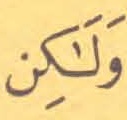 وَلَٰكِن